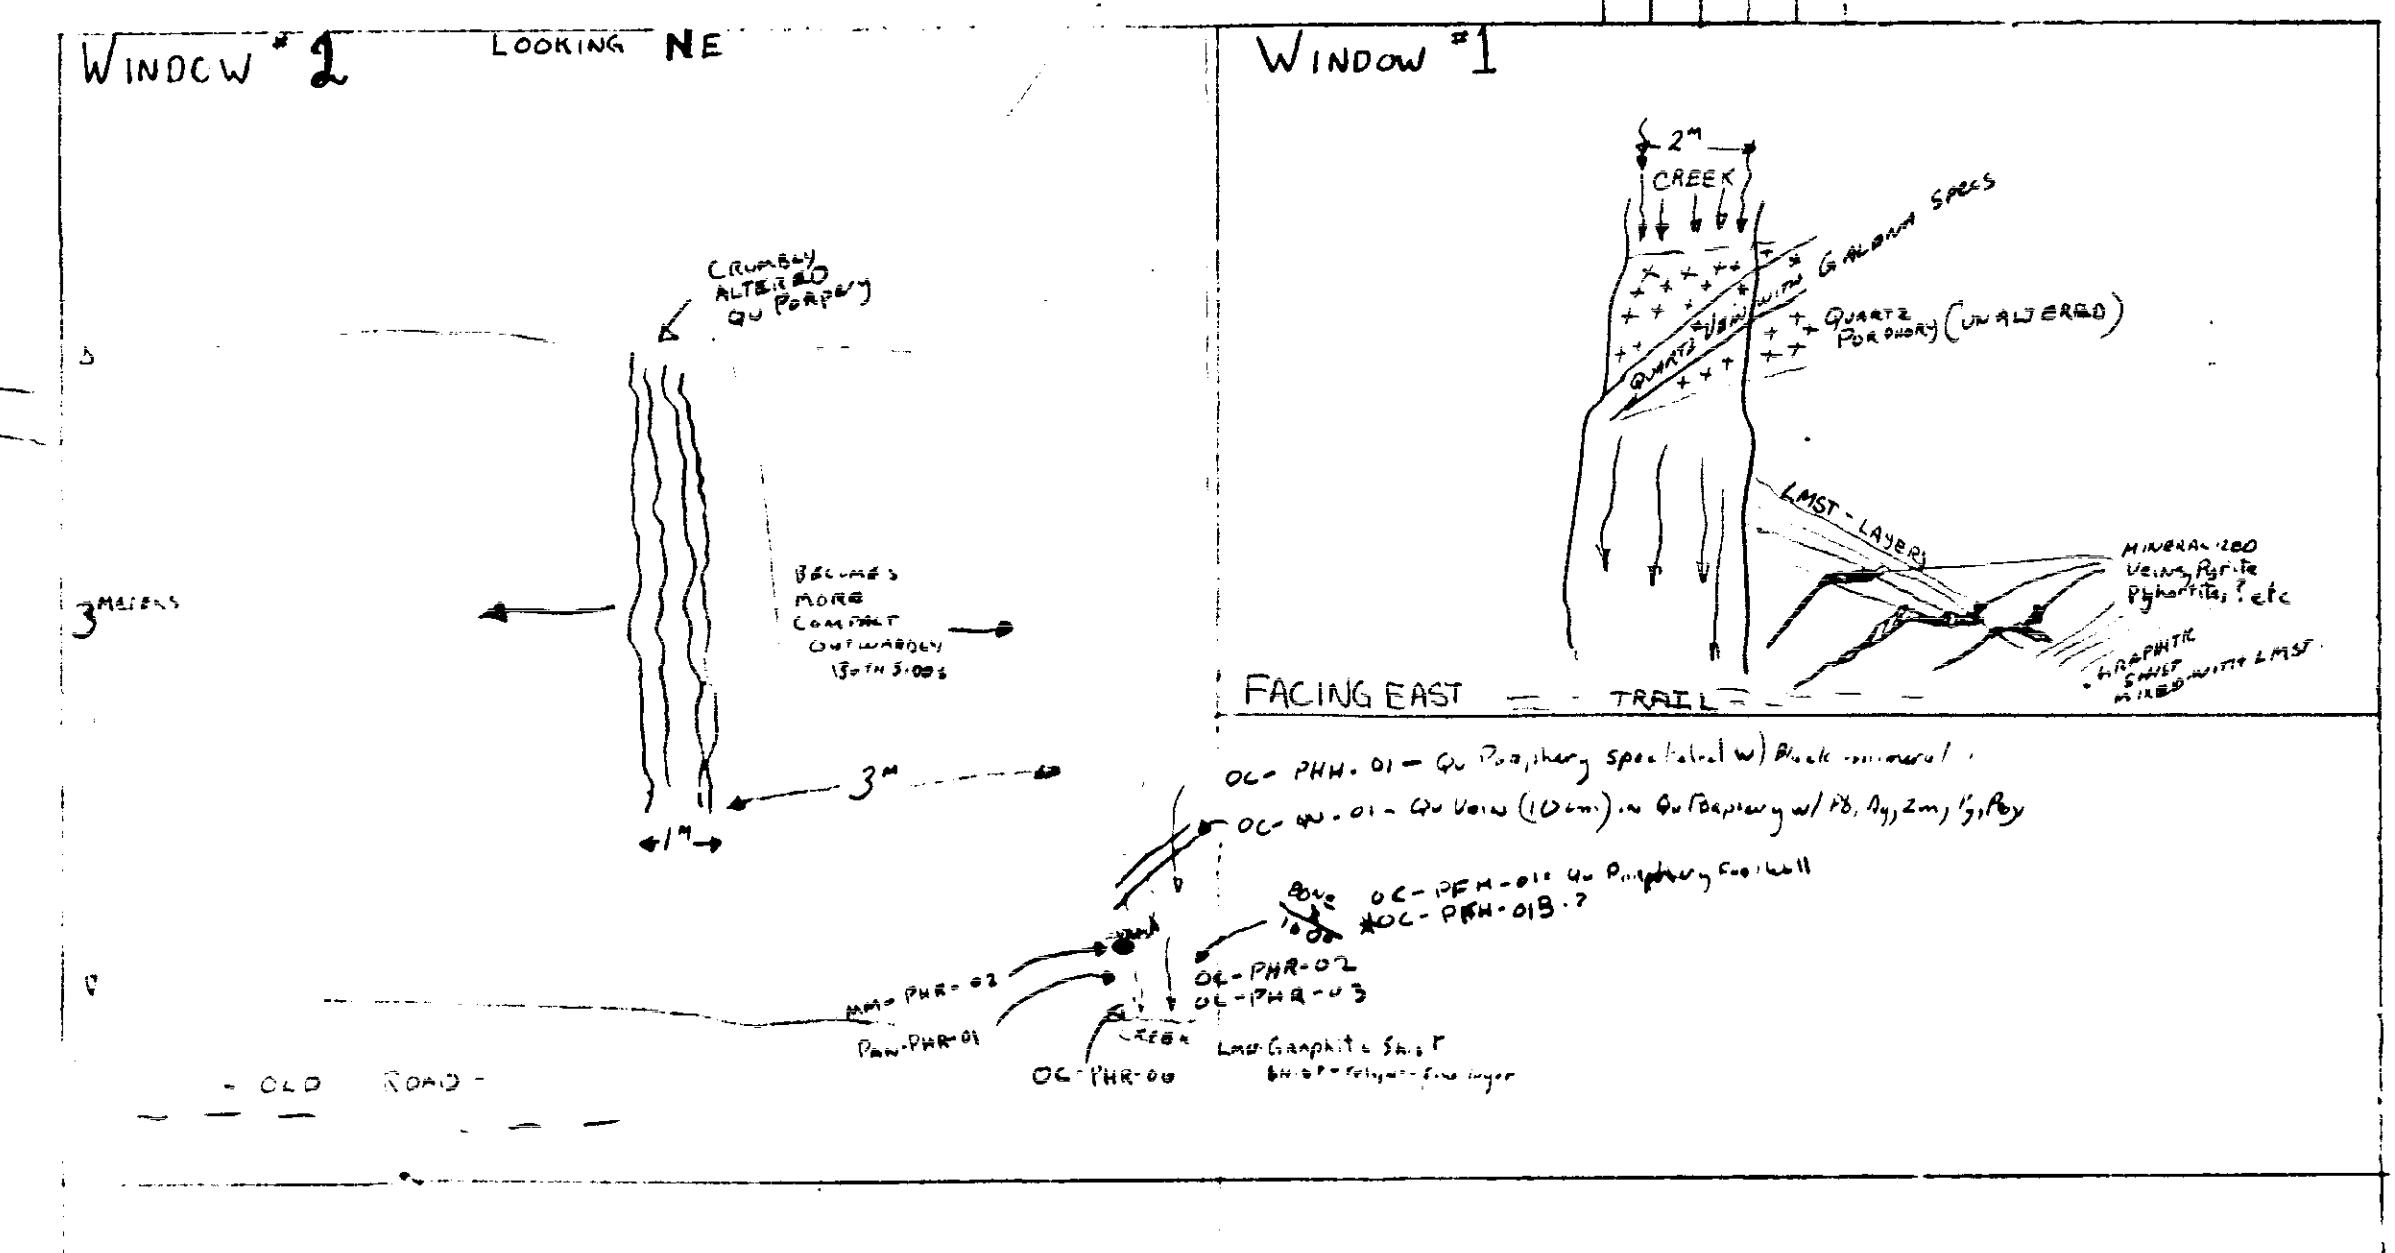 WINDOW #2
LOOKING NE
CRUMBLY
ALTERED
QU PORPERY
3 METERS
BECOMES
MORE
COMPACT
OUTWARDLY
BOTH SIDES
3M
1M
- OLD ROAD -
WINDOW #1
2M
CREEK
QUARTZ VEIN WITH GALENA SPECS
QUARTZ
PORPHORY (UNALTERED)
LMST - LAYERS
MINERALIZED
Veins, Pyrite
? etc
GRAPHITIC
SHIST
MIXED WITH LMST.
FACING EAST
TRAIL
OC- PHH-01 - Qu Porphery w) Black mineral
OC- QV-01 - Qu Vein (10cm) in Qu w/ Pb, Ag,
OC- PFH-01: Qu Footwall
OC- PFH-01B ?
MM- PHR-02
PAN-PHR-01
OC-PHR-02
OC-PHR-03
CREEK
OC-PHR-06
Graphite